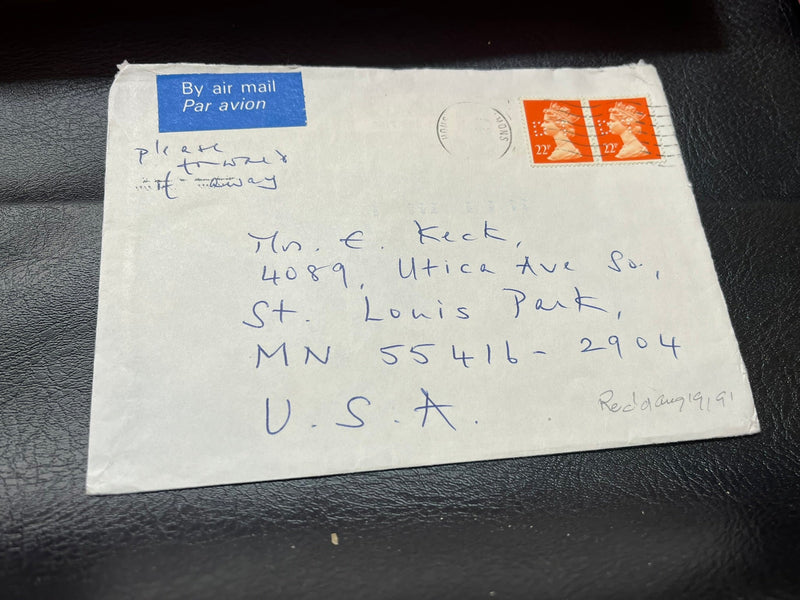 By air mail
Par avion
please
forward
if away
22P
22P
Mr. E. Keck,
4089, Utica Ave So.,
St. Louis Park,
MN 55416-2904
U.S.A.
Rec'd Aug 19, 91